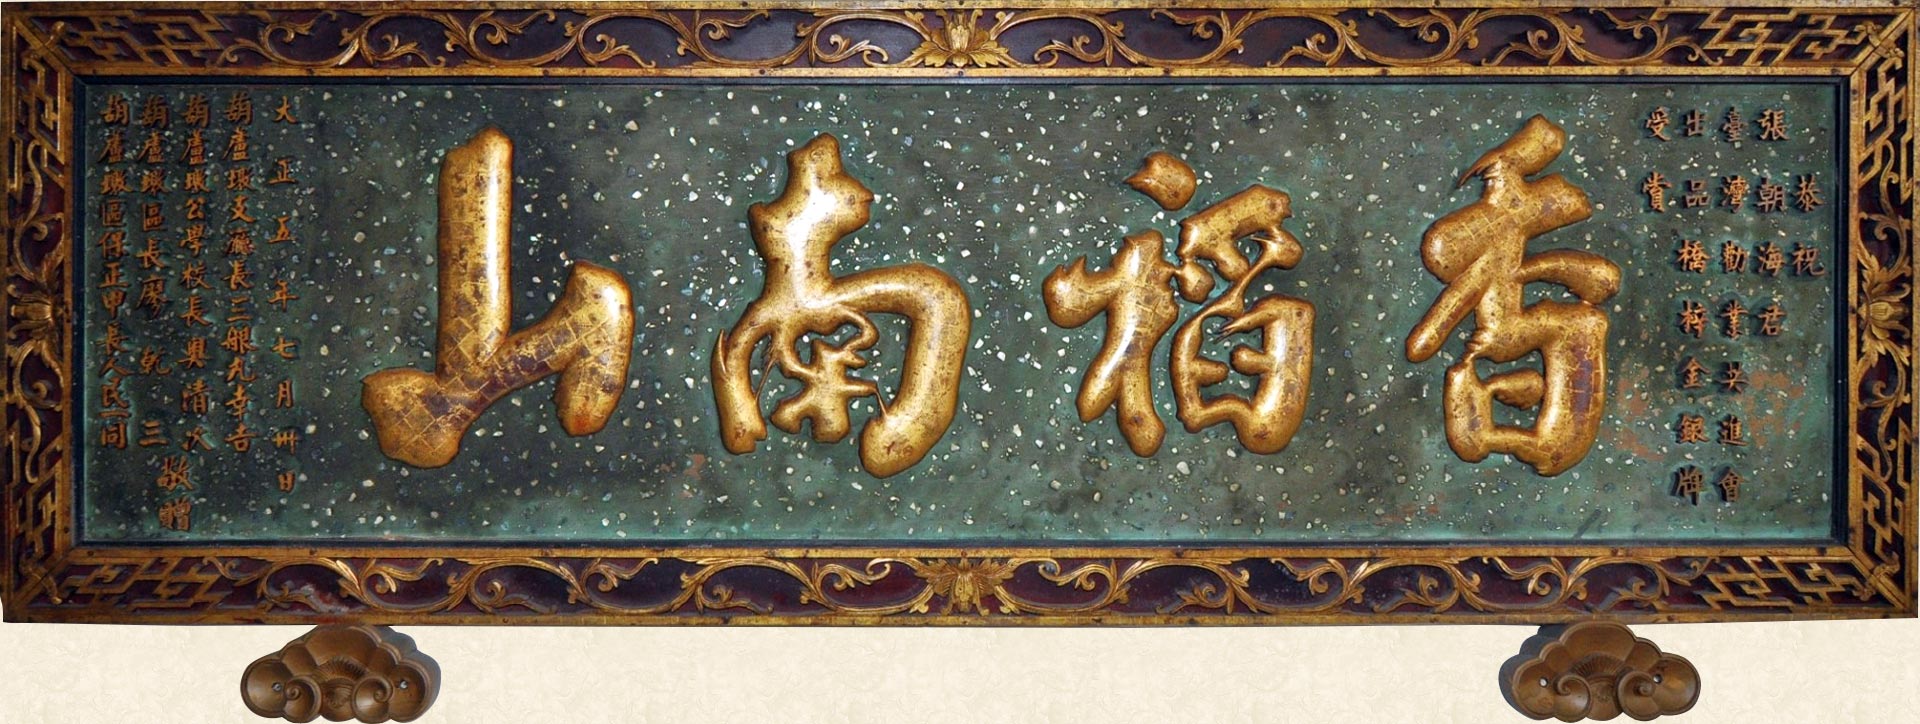 恭祝
張朝海君
臺灣勸業共進會
出品橋梓金銀牌
受賞
香稻南山
大正五年七月卅日
葫蘆墩支廳長三般九幸吉
葫蘆墩公學校長興清次
葫蘆墩區長廖乾三
敬贈
葫蘆墩區保正甲長人民一同